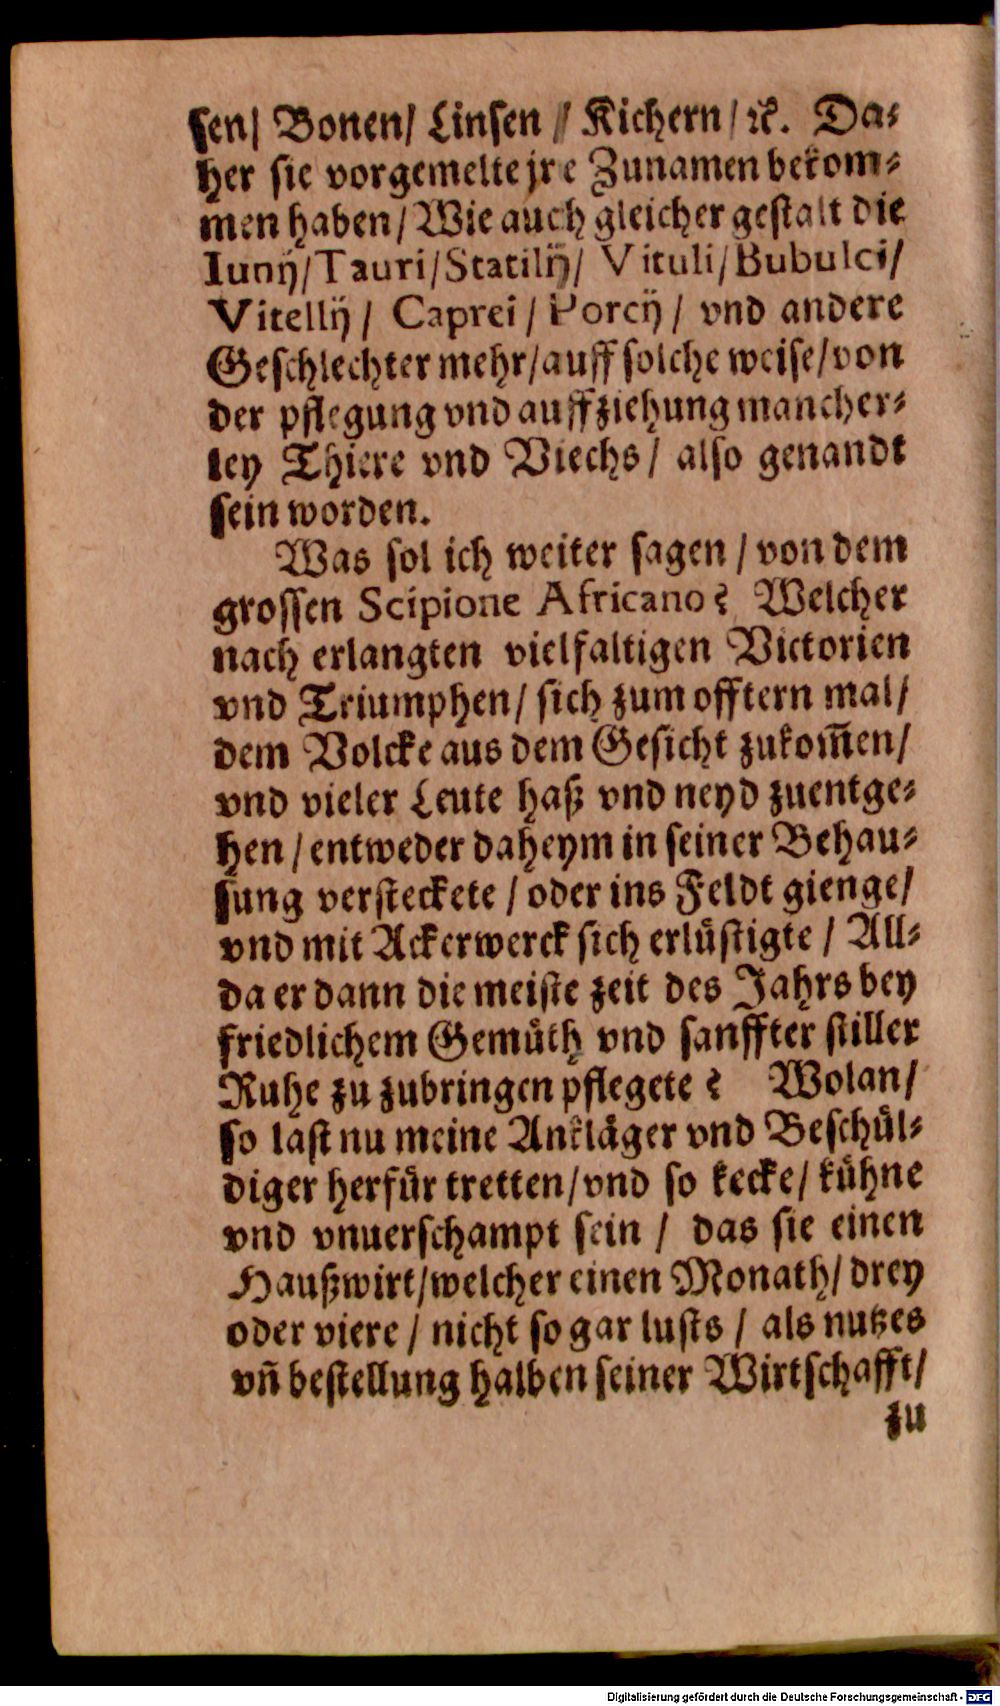 sen/ Bonen/ Linsen / Kichern/ ꝛc. Da-
her sie vorgemelte jre Zunamen bekom-
men haben/ Wie auch gleicher gestalt die
Iunij/ Tauri/ Statilij/ Vituli/ Bubulci/
Vitellij/ Caprei/ Porcij/ vnd andere
Geschlechter mehr/ auff solche weise/ von
der pflegung vnd auffziehung mancher-
ley Thiere vnd Viechs/ also genandt
sein worden.
Was sol ich weiter sagen/ von dem
grossen Scipione Africano? Welcher
nach erlangten vielfaltigen Victorien
vnd Triumphen/ sich zum offtern mal/
dem Volcke aus dem Gesicht zukom̃en/
vnd vieler Leute haß vnd neyd zuentge-
hen/ entweder daheym in seiner Behau-
sung versteckete/ oder ins Feldt gienge/
vnd mit Ackerwerck sich erlüstigte/ All-
da er dann die meiste zeit des Jahrs bey
friedlichem Gemüth vnd sanffter stiller
Ruhe zu zubringen pflegete? Wolan/
so last nu meine Ankläger vnd Beschül-
diger herfür tretten/ vnd so kecke/ kühne
vnd vnuerschampt sein/ das sie einen
Haußwirt/ welcher einen Monath/ drey
oder viere/ nicht so gar lusts/ als nutzes
vñ bestellung halben seiner Wirtschafft/
zu
Digitalisierung gefördert durch die Deutsche Forschungsgemeinschaft - DFG